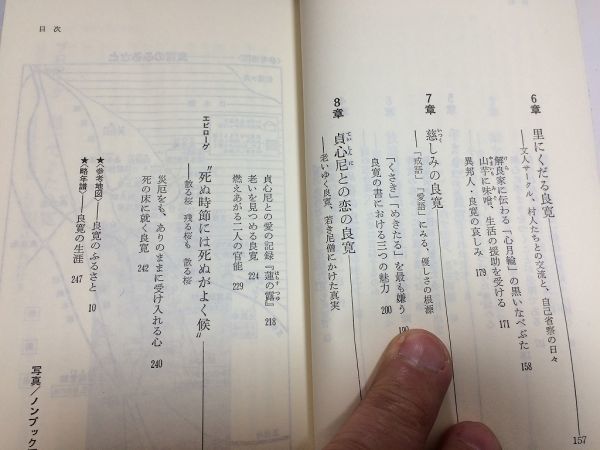 6章 里にくだる良寛
――文人サークル、村人たちとの交流と、自己省察の日々
157
解良家に伝わる「心月輪」の黒いなべぶた 158
山芋に味噌、生活の援助を受ける 171
異邦人・良寛の哀しみ 179
7章 慈しみの良寛
――「戒語」「愛語」にみる、優しさの根源
「くさき」「めきたる」を最も嫌う
良寛の書における三つの魅力 200
8章 貞心尼との恋の良寛
――老いゆく良寛、若き尼僧にかけた真実
貞心尼との愛の記録『蓮の露』 218
老いを見つめる良寛 224
燃えあがる二人の官能 229
エピローグ “死ぬ時節には死ぬがよく候”
――散る桜 残る桜も 散る桜
災厄をも、ありのままに受け入れる心 240
死の床に就く良寛 242
★〈参考地図〉――良寛のふるさと 10
★〈略年譜〉――良寛の生涯 247
写真/ノンブック
目次